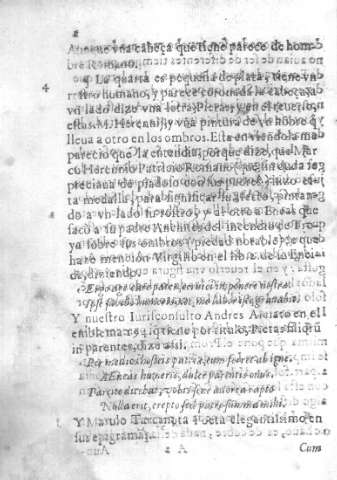 2
Aunque vna cabeça que tiene parece de hom-
bre Romano.
4 ¶ La quarta es pequeña de plata, tiene vn
rostro humano, y parece coronada la cabeça, a
vn lado dize vna letra, Pietas, y en el reuerso,
estas. M. Herenni, y vna pintura de vn hõbre q̃
lleua a otro en los ombros. Esta en viendola me
parecio que la entendia, porque dize, que Mar
co Herennio Patricio Romano, que sin duda se
preciaua de piadoso con sus padres, hizo es-
ta medalla, para significar su afecto, pintan-
do a vn lado su rostro, y al otro a Eneas que
saco a su padre Anchises del incendio de Tro-
ya sobre sus ombros (piedad notable) de que
haze mencion Virgilio en el lib. 2. de la Enei-
da, diziendo.
Ergo age chare pater, ceruici imponere nostræ:
Ipse subibo humeris, nec me labor iste grauabit.
Y nuestro Iurisconsulto Andres Alciato en el
emblema 194. q̃ tiene por titulo, Pietas filiorũ
in parentes, dize assi,
Per medios hosteis patriæ cum ferret ab igne.
Aeneas humeris, dulce parentis onus,
Parcite dicebat, vobis sene adorea rapto
Nulla erit, erepto sed patre summa mihi.
Y Marulo Tarcanota Poeta elegantissimo en
sus epigramas.
2 A Cum